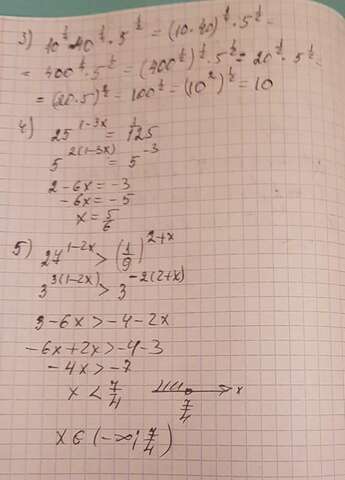 3) 10^½ · 40^¼ · 5^½ = (10·40)^¼ · 5^½ =
= 400^¼ · 5^½ = (400^½)^½ · 5^½ = 20^½ · 5^½ =
= (20·5)^½ = 100^½ = (10²)^½ = 10
4) 25^(1-3x) = 1/125
5^(2(1-3x)) = 5^(-3)
2-6x = -3
-6x = -5
x = 5/6
5) 27^(1-2x) > (1/9)^(2+x)
3^(3(1-2x)) > 3^(-2(2+x))
3-6x > -4-2x
-6x+2x > -4-3
-4x > -7
x < 7/4
x
7/4
x ∈ (-∞; 7/4)